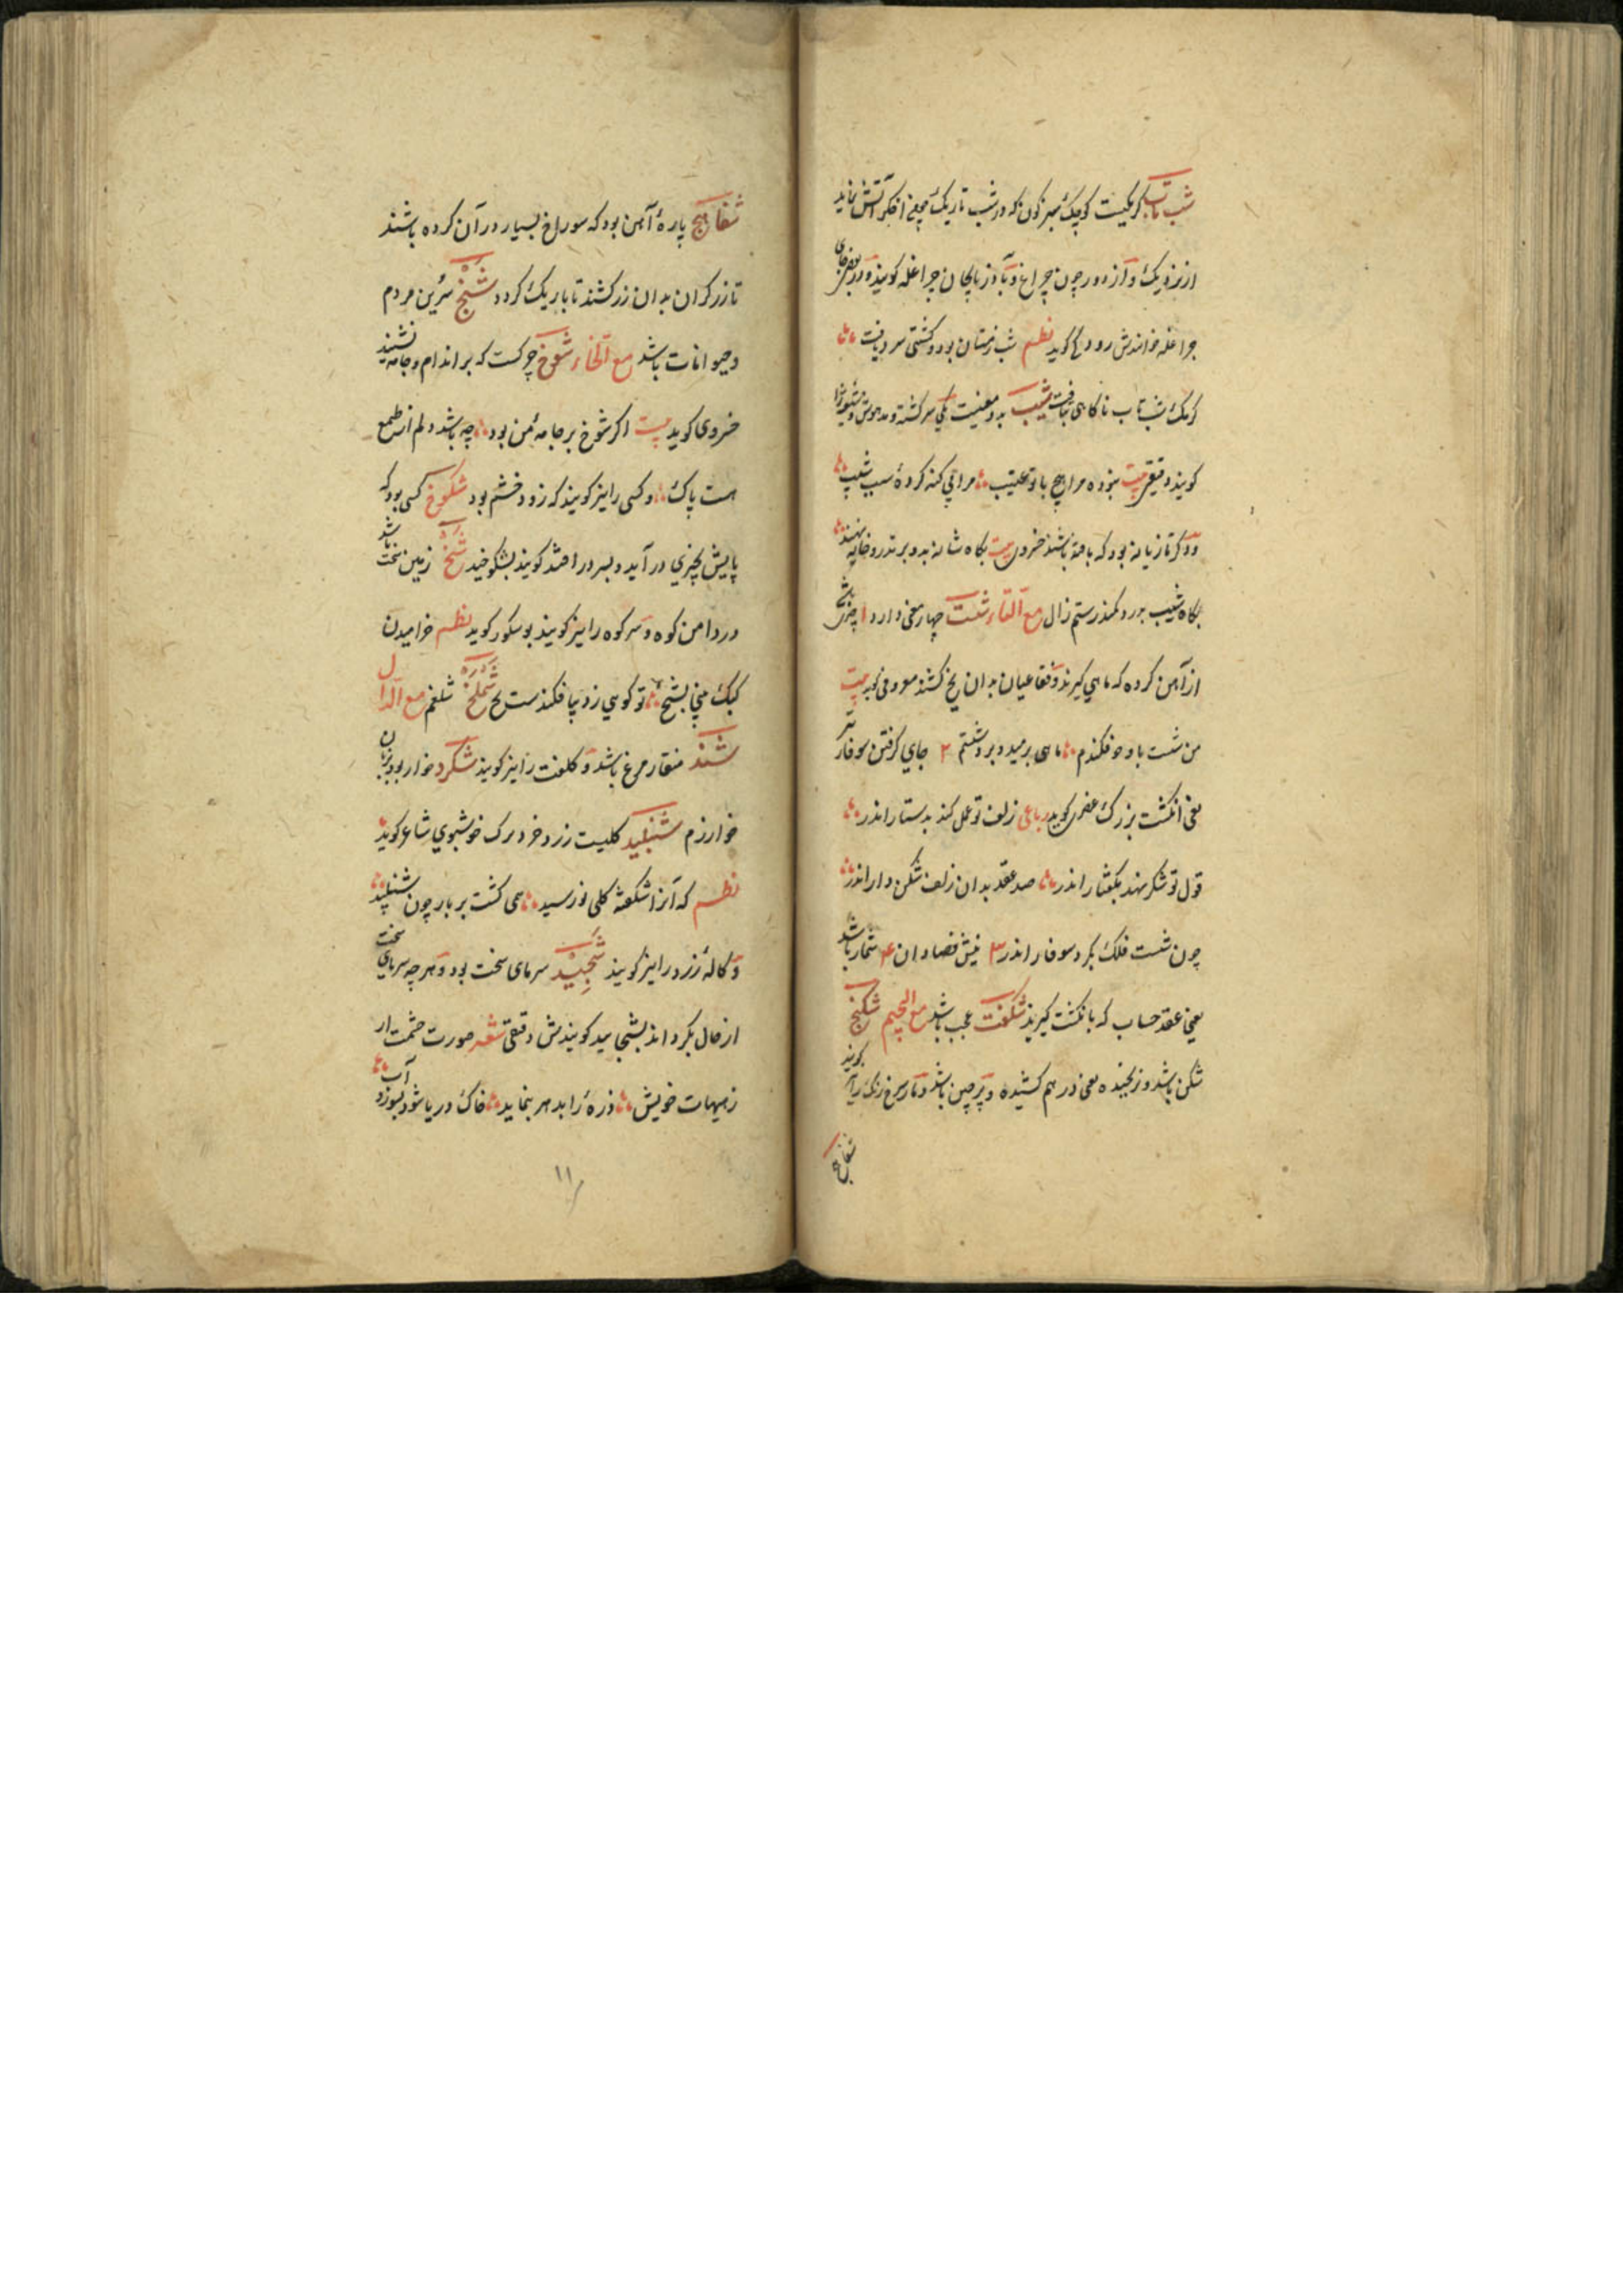 شب تاب کرمکیست کوچک سبز کون که در شب تاریک همچنی اخکر آتش نماید
از نزدیک و از دور چون چراغ و بآذربایجان چراغله کویند و در بعضی جای
چراغله خوانندش رودکی کوید نظم شب زمستان بود و کپی سرد یافت
کرمک شب تاب ناکاهی بتافت شیب بدو معنیست یکی سرکشته و مدهوش و شیوریده را
کویند دقیقی بیت نبوده مرا هیچ با تو عتیب مرا بی کنه کرده شیب شیب
دوم تازیانه بود که بافته باشند خسروی بیت بکاه شانه بدو بر تذرو خایه نهند
بکاه شیب بدرد کمند رستم زال مع التاء شست چهار معنی دارد ۱ چیزی باشد
از آهن کرده که ماهی کیرند و فقاعیان بدان یخ کشند معروفی کوید بیت
من شست بدریا فروفکندم ماهی برمید و ببرد شستم ۲ جای کرفتن سوفار تیر
یعنی انکشت بزرک عنصری کوید رباعی زلف تو عمل کند بدستار اندر
قول تو شکر نهد بکفتار اندر صد عقد بدان زلف شکن دار اندر
چون شست فلک بکرد سوفار اندر ۳ نیش فصادان ۴ شمار باشد
یعنی عقد حساب که بانکشت کیرند شکفت عجب باشد مع الجیم شکنج
شکن باشد و ترنجیده یعنی در هم کشیده و پرچین باشد و مار سرخ رنک را کویند
شفاهج
شفاهج پارهٔ آهن بود که سوراخ بسیار در آن کرده باشند
تا زرکران بدان زر کشند تا باریک کردد شنج سرین مردم
و حیوانات باشد مع الخاء شوخ چرکست که بر اندام و جامه نشیند
خسروی کوید بیت اکر شوخ بر جامهٔ من بود چه باشد دلم از طمع
هست پاک و کسی را نیز کویند که زود خشم بود شکوخ کسی بود که
پایش بچیزی در آید و بسر در افتد کویند بشکوخید شخ زمین سخت باشد
در دامن کوه و سر کوه را نیز کویند بوشکور کوید نظم خرامیدن
کبک بینی بشخ تو کویی ز دیبا فکندست نخ شملخ شلغم مع الدال
شند منقار مرغ باشد و کلفت را نیز کویند شکرد خوار بود بزبان
خوارزم شنبلید کلیست زرد خرد برک خوشبوی شاعر کوید
نظم که آنرا شکفته کلی نورسید همی کشت بر بار چون شنبلید
و کالهٔ زرد را نیز کویند شجید سرمای سخت بود و هر چه سرمای سخت
از حال بکرداند بشجایید کویندش دقیقی شعر صورت خشمت ار
ز هیبت خویش ذرهٔ را بدهر بنماید خاک دریا شود بسوزد آب
۱۱